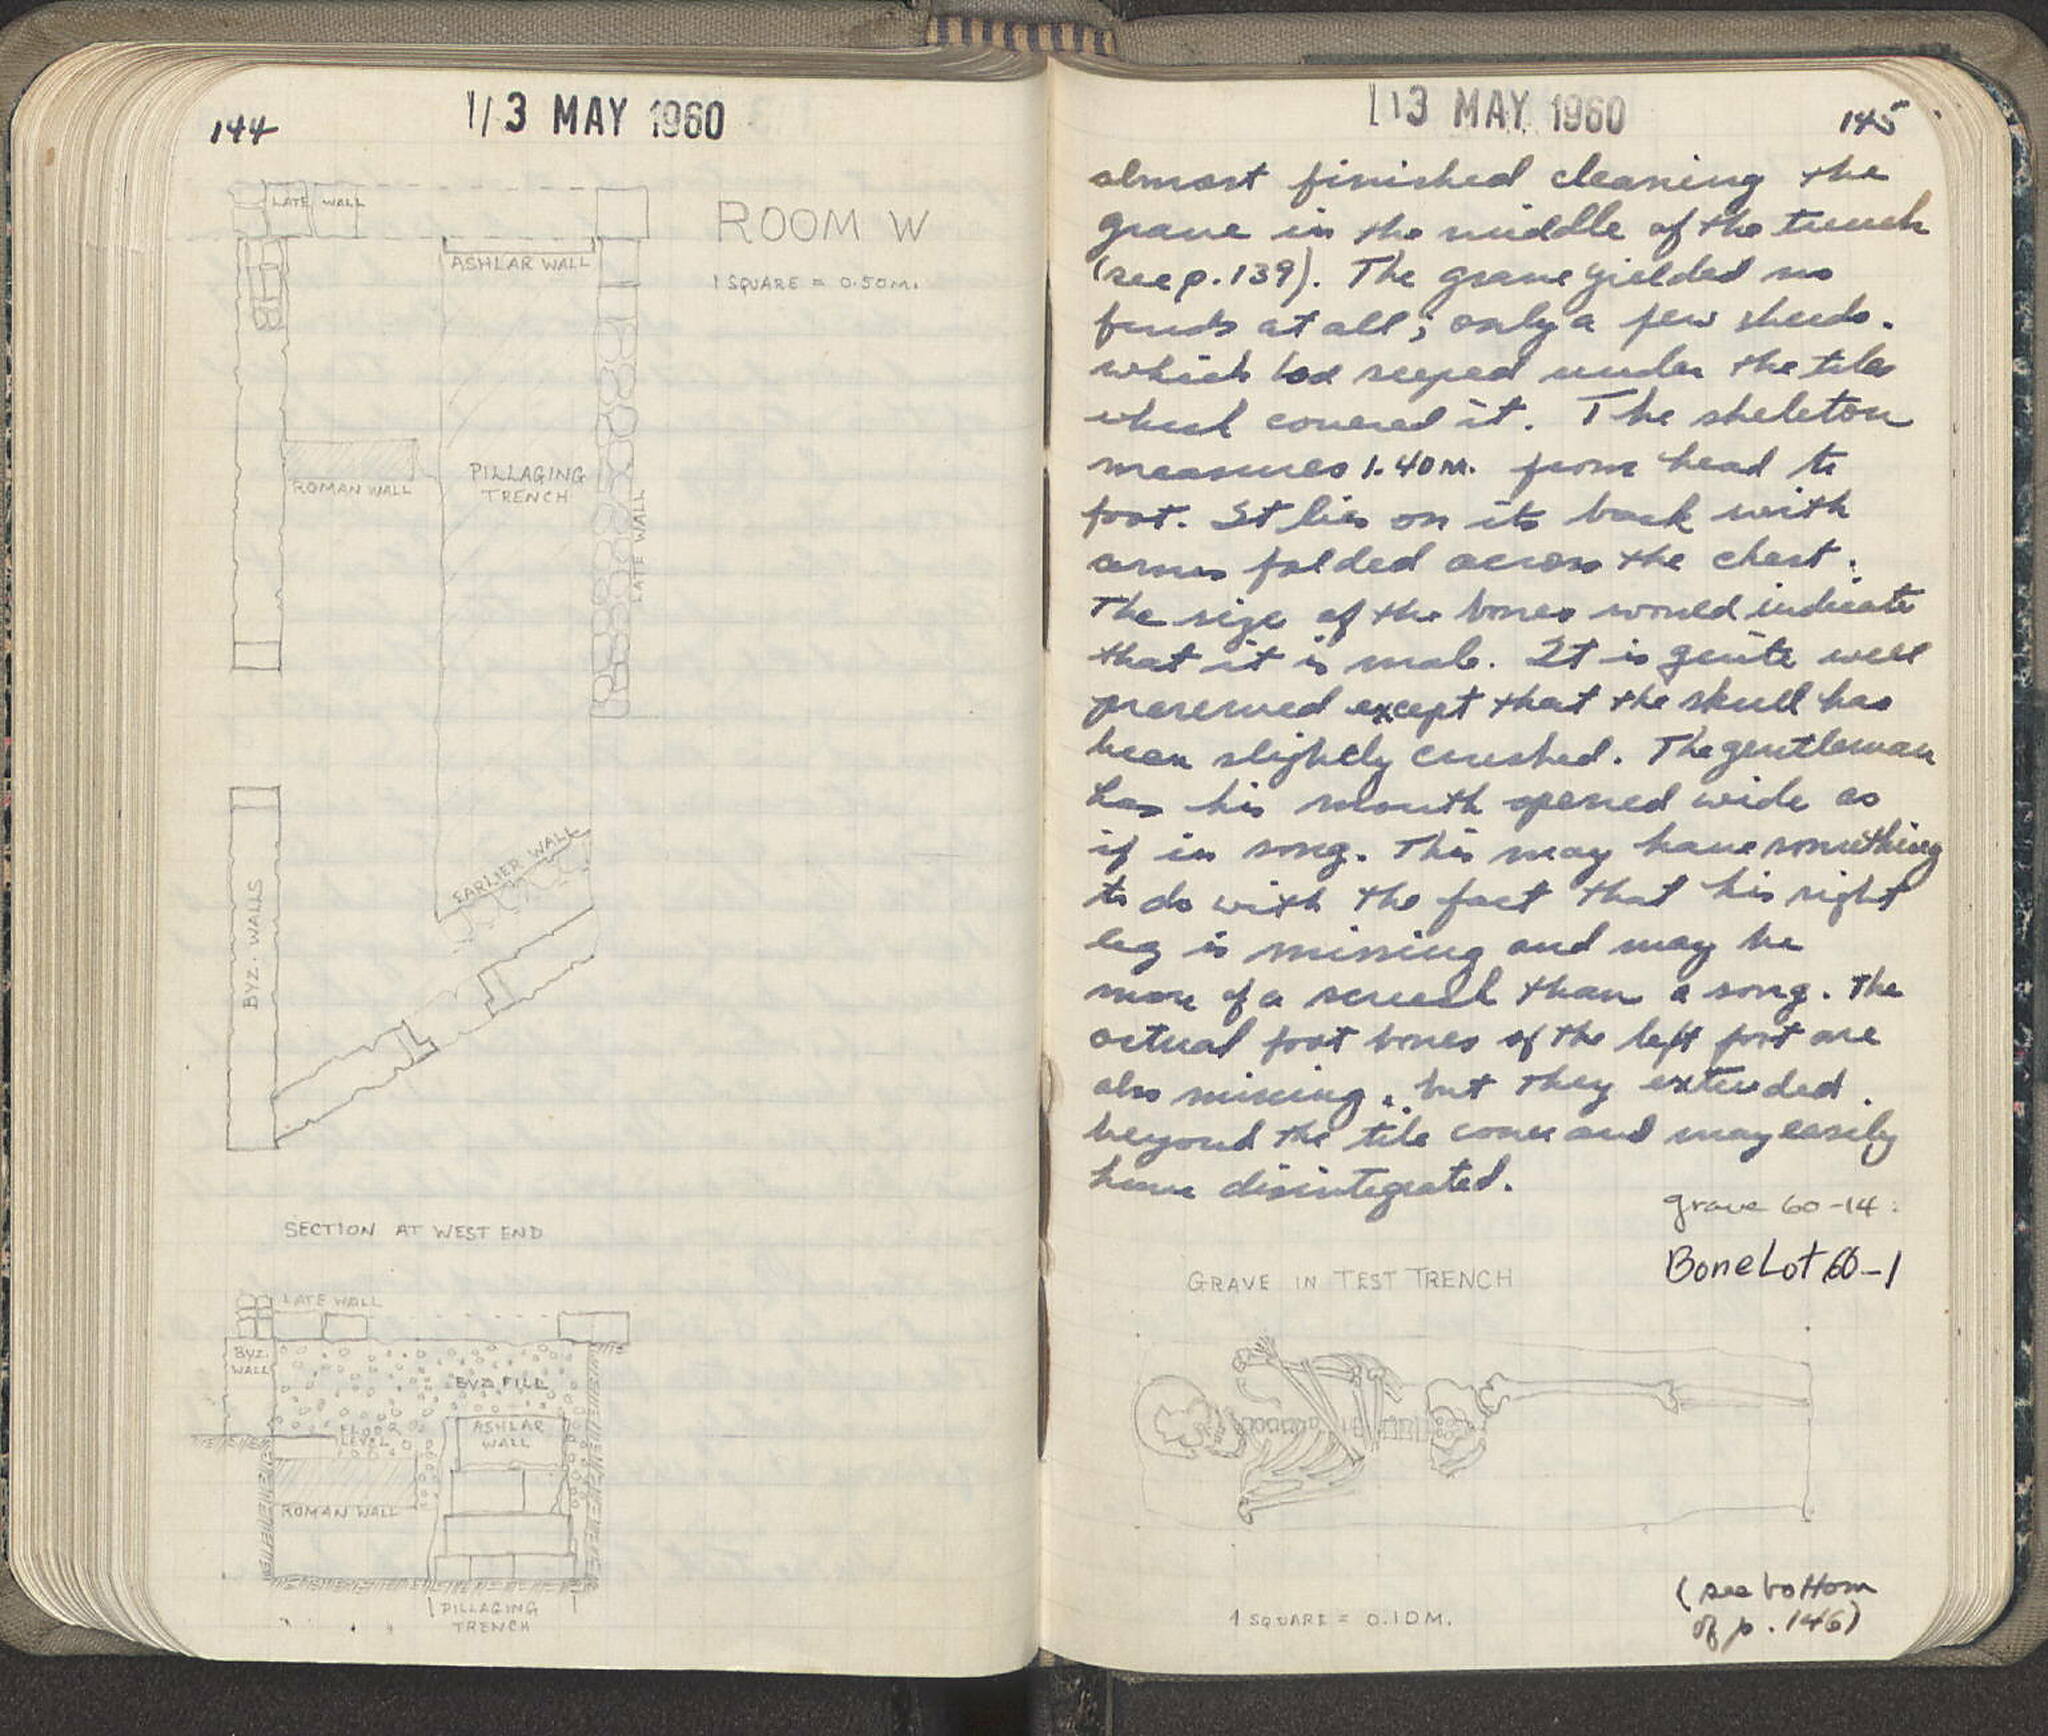 144
13 MAY 1960
LATE WALL
ROOM W
ASHLAR WALL
1 SQUARE = 0.50M.
ROMAN WALL
PILLAGING
TRENCH
LATE WALL
EARLIER WALL
BYZ. WALLS
SECTION AT WEST END
LATE WALL
BYZ.
WALL
BYZ FILL
FLOOR
LEVEL
ASHLAR
WALL
ROMAN WALL
PILLAGING
TRENCH
13 MAY 1960
145
almost finished cleaning the
grave in the middle of the trench
(see p. 139). The grave yielded no
finds at all; only a few sherds.
which had seeped under the tiles
which covered it. The skeleton
measures 1.40 m. from head to
foot. It lies on its back with
arms folded across the chest.
The size of the bones would indicate
that it is male. It is quite well
preserved except that the skull has
been slightly crushed. The gentleman
has his mouth opened wide as
if in song. This may have something
to do with the fact that his right
leg is missing and may be
more of a screech than a song. The
actual foot bones of the left foot are
also missing, but they extended
beyond the tile cover and may easily
have disintegrated.
grave 60-14:
Bone Lot 60-1
GRAVE IN TEST TRENCH
1 SQUARE = 0.10M.
(see bottom
of p. 146)